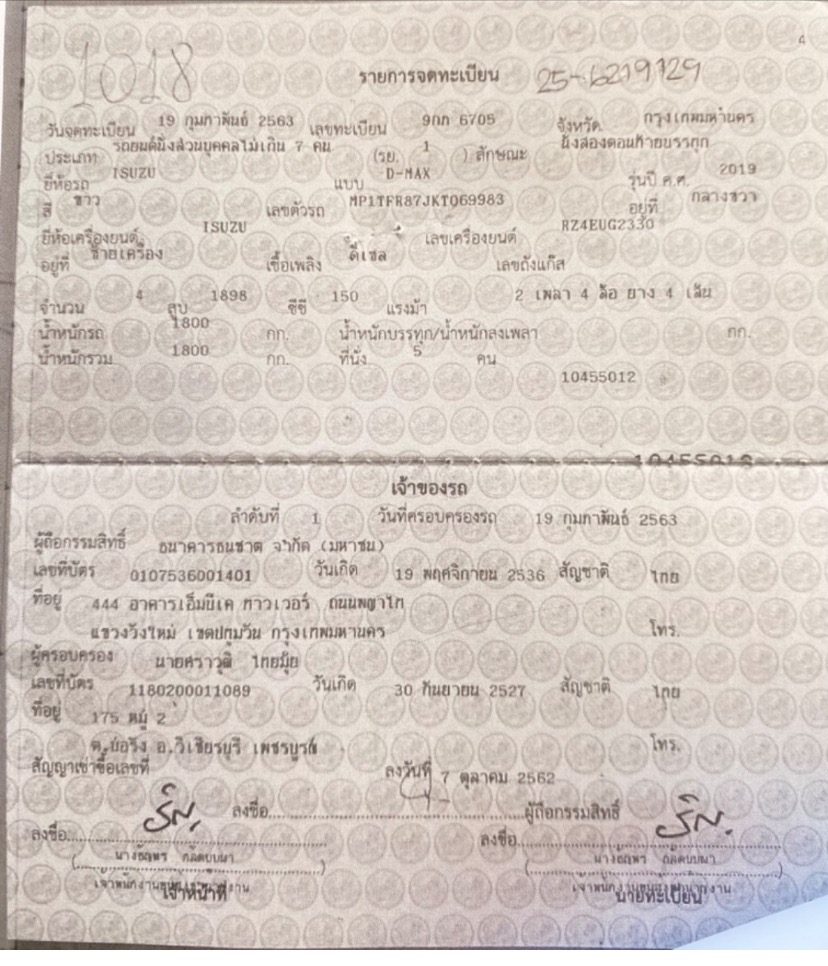 1018
รายการจดทะเบียน 25-6219129
วันจดทะเบียน 19 กุมภาพันธ์ 2563 เลขทะเบียน 9กก 6705 จังหวัด กรุงเทพมหานคร
ประเภท รถยนต์นั่งส่วนบุคคลไม่เกิน 7 คน (รย. 1 ) ลักษณะ นั่งสองตอนท้ายบรรทุก
ยี่ห้อรถ ISUZU แบบ D-MAX รุ่นปี ค.ศ. 2019
สี ขาว เลขตัวรถ MP1TFR87JKT069983 อยู่ที่ กลางขวา
ยี่ห้อเครื่องยนต์ ISUZU เลขเครื่องยนต์ RZ4EUG2330
อยู่ที่ ซ้ายเครื่อง เชื้อเพลิง ดีเซล เลขถังแก๊ส
จำนวน 4 สูบ 1898 ซีซี 150 แรงม้า 2 เพลา 4 ล้อ ยาง 4 เส้น
น้ำหนักรถ 1800 กก. น้ำหนักบรรทุก/น้ำหนักลงเพลา กก.
น้ำหนักรวม 1800 กก. ที่นั่ง 5 คน
10455012
10455012
เจ้าของรถ
ลำดับที่ 1 วันที่ครอบครองรถ 19 กุมภาพันธ์ 2563
ผู้ถือกรรมสิทธิ์ ธนาคารธนชาต จำกัด (มหาชน)
เลขที่บัตร 0107536001401 วันเกิด 19 พฤศจิกายน 2536 สัญชาติ ไทย
ที่อยู่ 444 อาคารเอ็มบีเค ทาวเวอร์ ถนนพญาไท
แขวงวังใหม่ เขตปทุมวัน กรุงเทพมหานคร โทร.
ผู้ครอบครอง นายศราวุฒิ ไทยมุ้ย
เลขที่บัตร 1180200011089 วันเกิด 30 กันยายน 2527 สัญชาติ ไทย
ที่อยู่ 175 หมู่ 2
ต.บ่อรัง อ.วิเชียรบุรี เพชรบูรณ์ โทร.
สัญญาเช่าซื้อเลขที่ ลงวันที่ 7 ตุลาคม 2562
ลงชื่อ ผู้ถือกรรมสิทธิ์
ลงชื่อ ลงชื่อ
เจ้าหน้าที่ นายทะเบียน